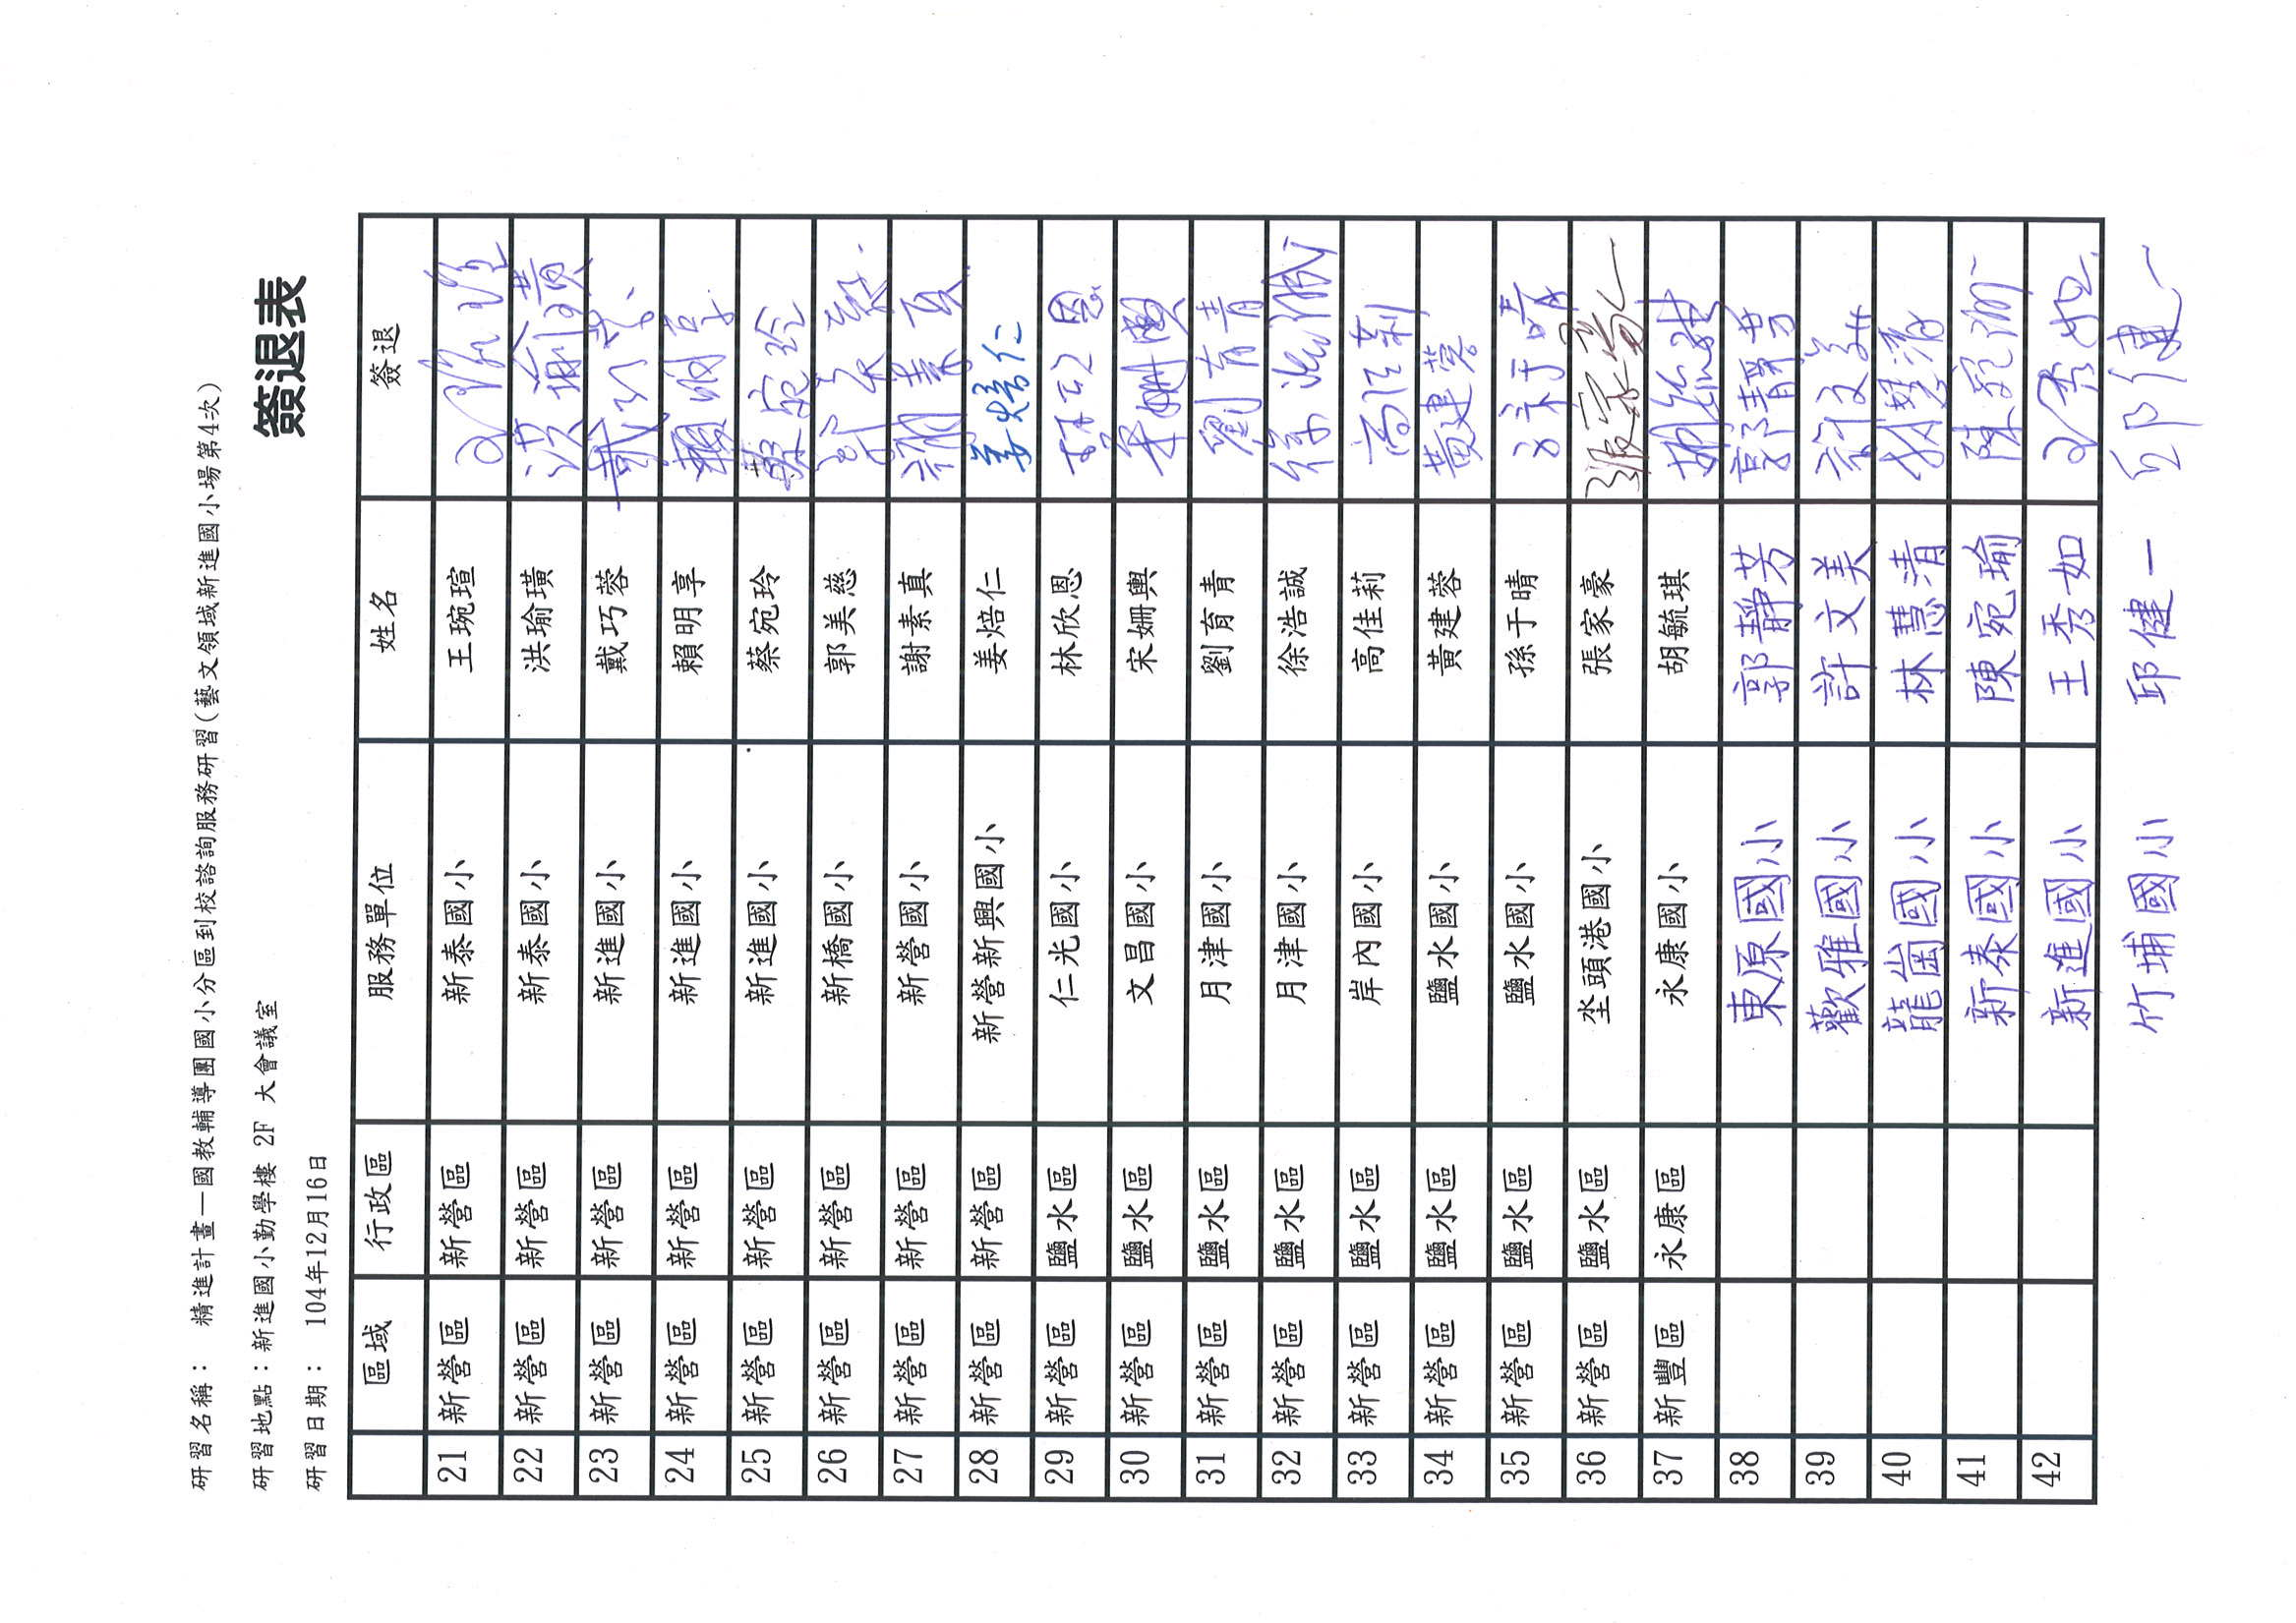 研習名稱： 精進計畫—國教輔導團國小分區到校諮詢服務研習(藝文領域新進國小場第4次)
研習地點：新進國小勤學樓 2F 大會議室
簽退表
研習日期： 104年12月16日
區域 行政區 服務單位 姓名 簽退
21 新營區 新營區 新泰國小 王琬瑄
22 新營區 新營區 新泰國小 洪瑜璜 洪瑜璜
23 新營區 新營區 新進國小 戴巧蓉 戴巧蓉
24 新營區 新營區 新進國小 賴明享 賴明享
25 新營區 新營區 新進國小 蔡宛玲 蔡宛玲
26 新營區 新營區 新橋國小 郭美慈
27 新營區 新營區 新營國小 謝素真 謝素真
28 新營區 新營區 新營新興國小 姜焙仁 姜焙仁
29 新營區 鹽水區 仁光國小 林欣恩 林欣恩
30 新營區 鹽水區 文昌國小 宋姍輿 宋姍輿
31 新營區 鹽水區 月津國小 劉育青 劉育青
32 新營區 鹽水區 月津國小 徐浩誠 徐浩誠
33 新營區 鹽水區 岸內國小 高佳莉 高佳莉
34 新營區 鹽水區 鹽水國小 黃建蓉 黃建蓉
35 新營區 鹽水區 鹽水國小 孫于晴 孫于晴
36 新營區 鹽水區 坔頭港國小 張家豪 張家豪
37 新豐區 永康區 永康國小 胡毓琪 胡毓琪
38 東原國小 郭靜芳 郭靜芳
39 歡雅國小 許文美 許文美
40 龍崗國小 林慧清 林慧清
41 新泰國小 陳宛瑜 陳宛瑜
42 新進國小 王秀如 王秀如
竹埔國小 邱健一 邱健一